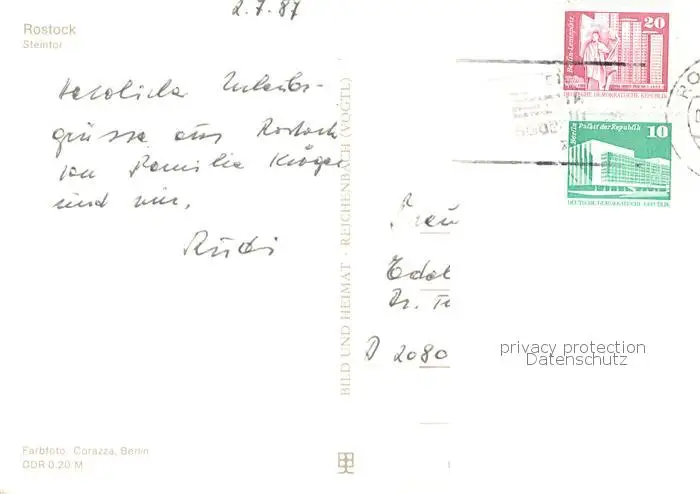 2.7.87
Rostock
Steintor
Herzliche Urlaubs-
grüsse aus Rostock
von Familie Kröger
und mir.
Rudi
BILD UND HEIMAT · REICHENBACH (VOGTL)
Berlin-Leninplatz
20
DEUTSCHE DEMOKRATISCHE REPUBLIK
Berlin Palast der Republik
10
DEUTSCHE DEMOKRATISCHE REPUBLIK
RO
Frau
Edel
Dr.
D 2080
privacy protection
Datenschutz
Farbfoto: Corazza, Berlin
DDR 0,20 M